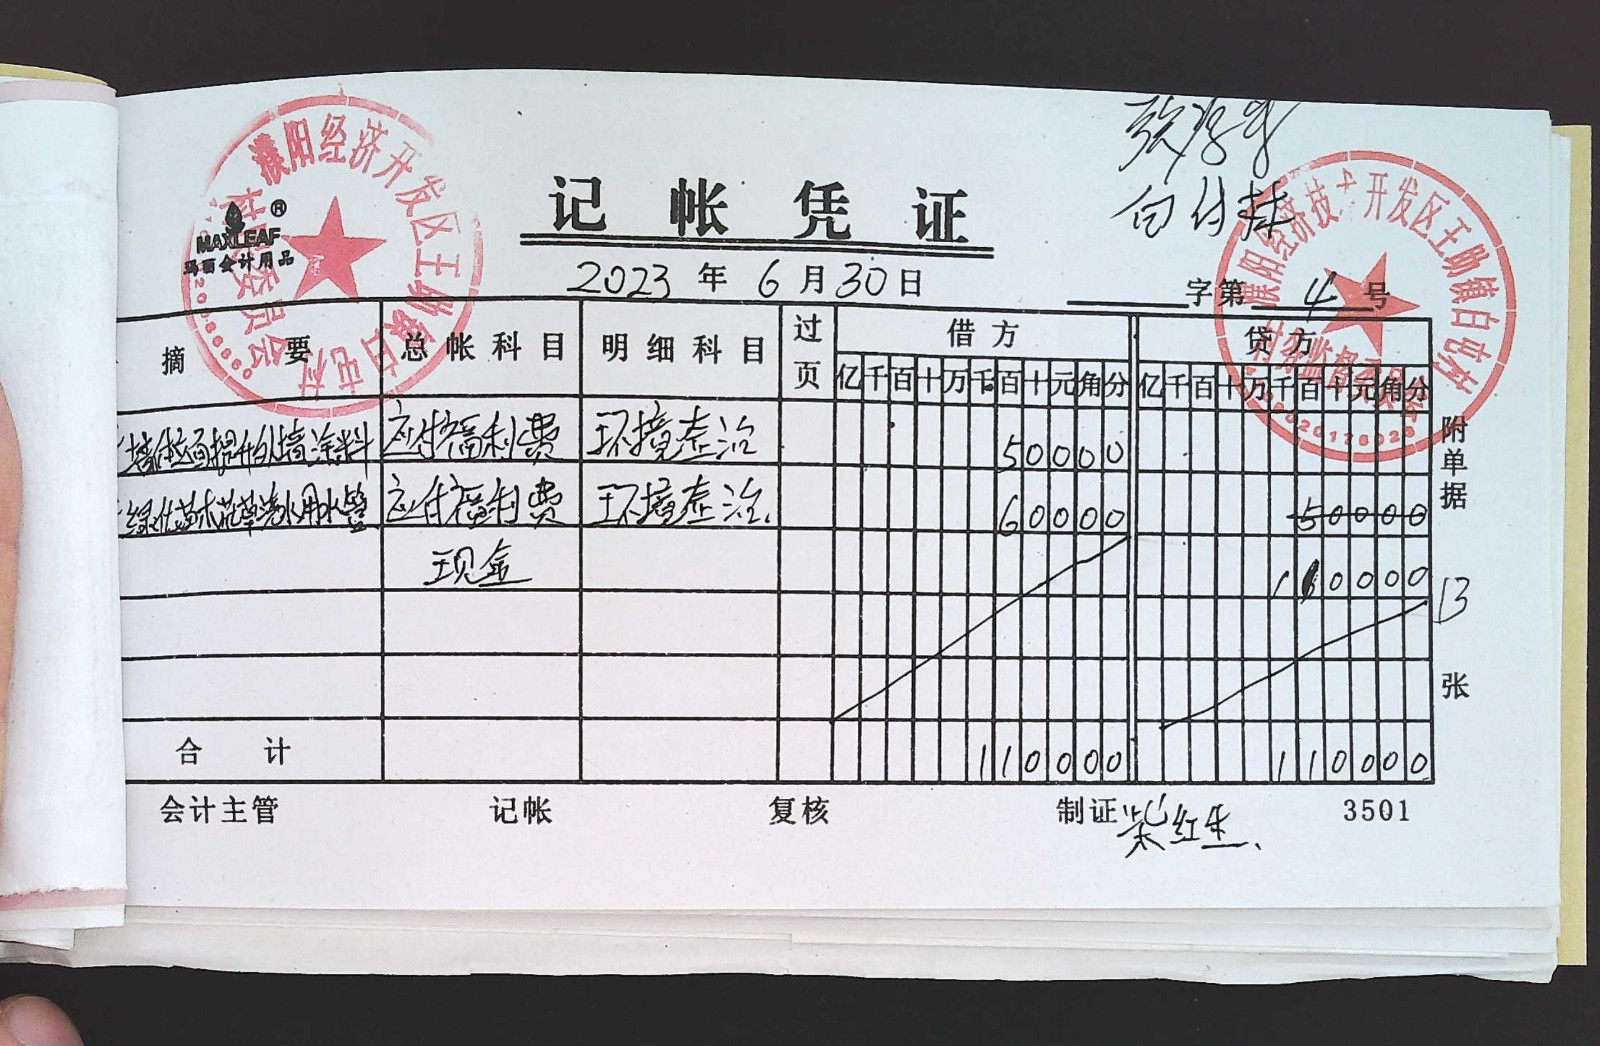 濮阳经济开发区王助镇白屯村
村民委员会
MAXLEAF®
玛丽会计用品
记帐凭证
白付林
2023年6月30日
字第4号
濮阳经济技术开发区王助镇白屯村
村务监督委员会
摘要 总帐科目 明细科目 过页 借方 贷方
亿千百十万千百十元角分 亿千百十万千百十元角分
墙体立面提升外墙涂料 应付福利费 环境整治 50000
绿化苗木花草浇水用水管 应付福利费 环境整治 60000 50000
现金 110000
合计 110000 110000
附单据 13 张
会计主管 记帐 复核 制证 柴红生 3501